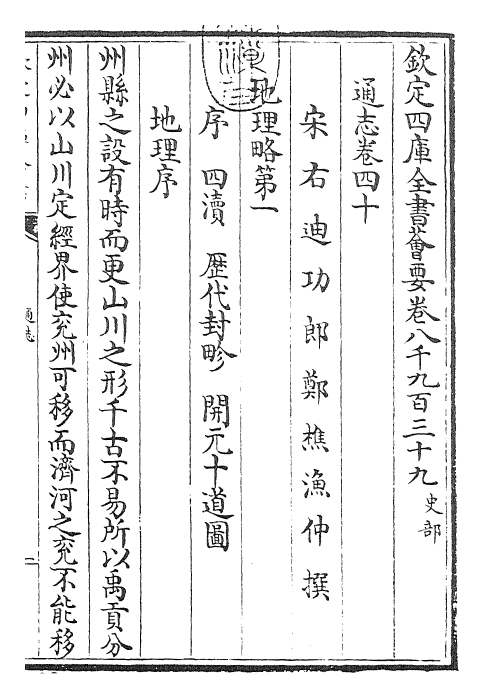 欽定四庫全書薈要卷八千九百三十九 史部
通志卷四十
宋右迪功郎鄭樵漁仲撰
地理略第一
序 四瀆 歴代封畛 開元十道圖
地理序
州縣之設有時而更山川之形千古不易所以禹貢分
州必以山川定經界使兖州可移而濟河之兖不能移
通志